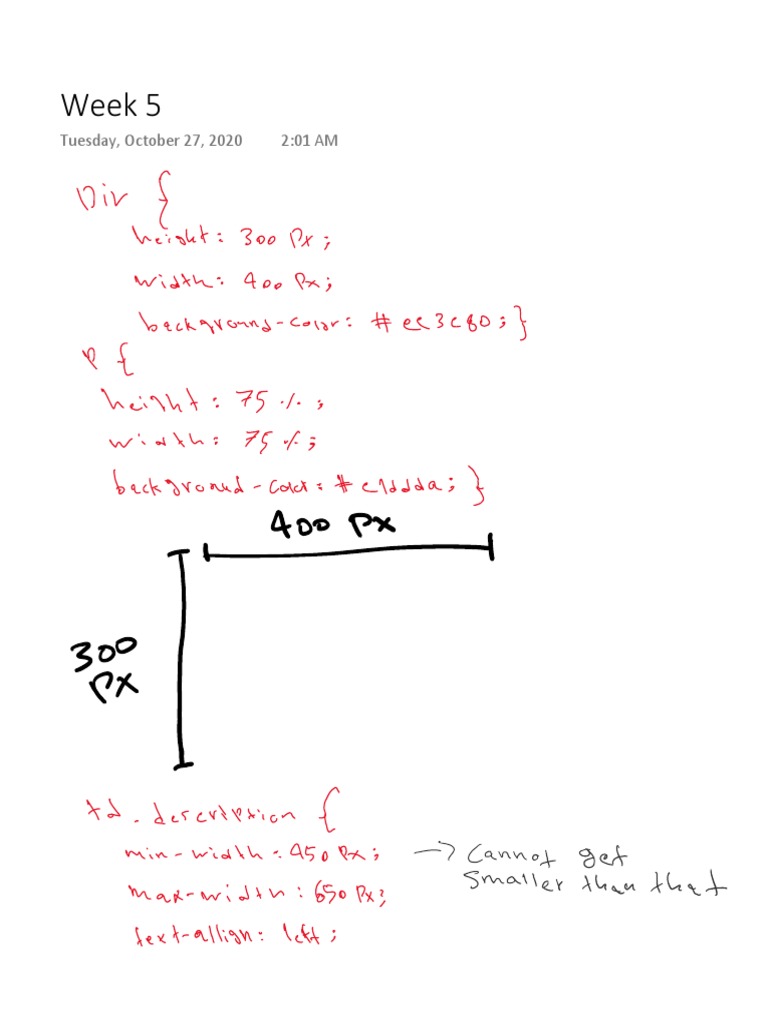 Week 5
Tuesday, October 27, 2020 2:01 AM
Div {
height: 300 Px;
width: 400 Px;
background-color: #ee3e80;}
P {
height: 75%;
width: 75%;
background-color: #e1ddda;}
400 Px
300
Px
td.description {
min-width: 450 Px; → Cannot get
smaller than that
max-width: 650 Px;
text-allign: left;